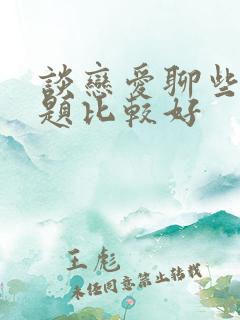 談戀愛聊些
題比較好
王彪
未经同意禁止转载